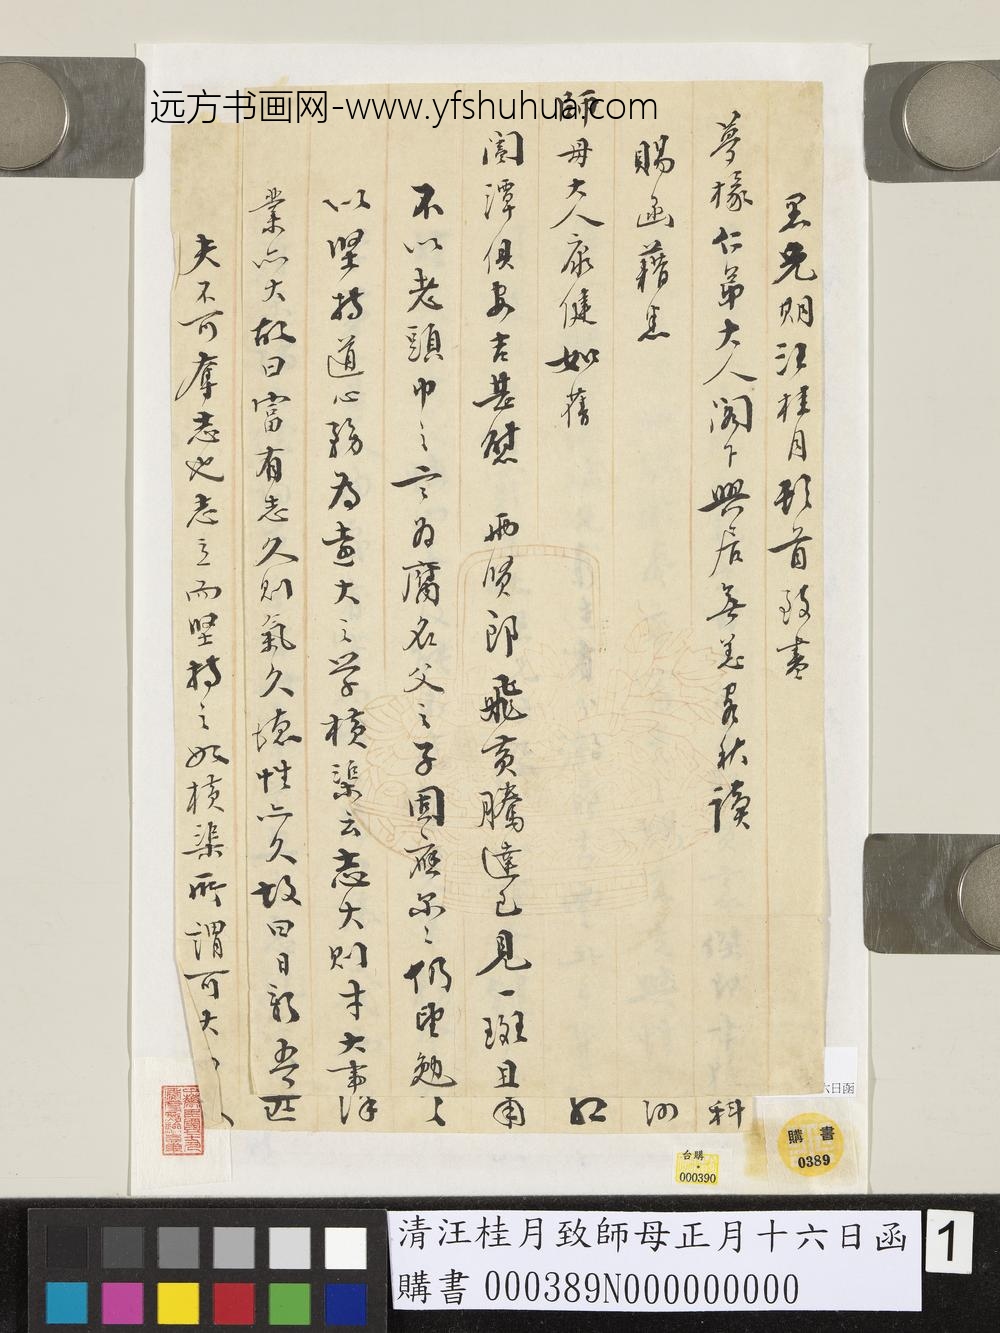 远方书画网-www.yfshuhua.com
愚兄期汪桂月頓首致書
夢橡仁弟大人閣下興居無恙客秋讀
賜函藉悉
師母大人康健如舊
閤潭俱安吉甚慰 兩賢郎飛黃騰達已見一斑且
不以老頭巾之言為腐名父之子固應尔尔仍望勉
以堅持道心務為遠大之学橫渠云志大則才大事
業亦大故曰富有志久則氣久德性亦久故曰日新吾
夫不可奪志也志立而堅持之如橫渠所謂可大
科
匹
六日函
購書
0389
台購
000390
清汪桂月致師母正月十六日函
購書 000389N000000000
1